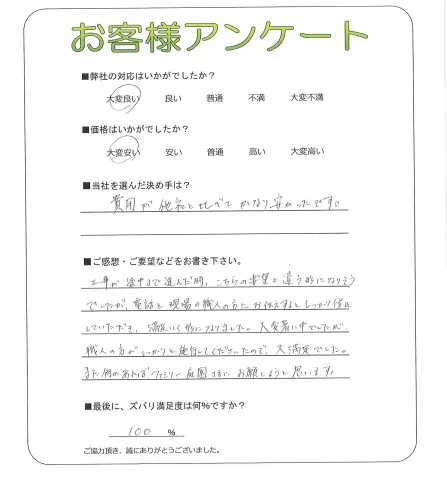 お客様アンケート
■弊社の対応はいかがでしたか?
大変良い 良い 普通 不満 大変不満
■価格はいかがでしたか?
大変安い 安い 普通 高い 大変高い
■当社を選んだ決め手は?
費用が他社と比べてかなり安かったです。
■ご感想・ご要望などをお書き下さい。
工事が途中まで進んだ時、こちらの要望と違う形になりそう
でしたが、電話と現場の職人の方にお伝えするとしっかり修正
していただき、満足いく形になりました。大変暑い中でしたが、
職人の方がしっかりと施行してくださったので、大満足でした。
また何かあればファミリー庭園さまにお願しようと思います。
■最後に、ズバリ満足度は何%ですか?
100 %
ご協力頂き、誠にありがとうございました。